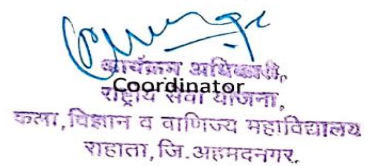 कार्यक्रम अधिकारी,
Coordinator
राष्ट्रीय सेवा योजना,
कला, विज्ञान व वाणिज्य महाविद्यालय
राहाता, जि.अहमदनगर.